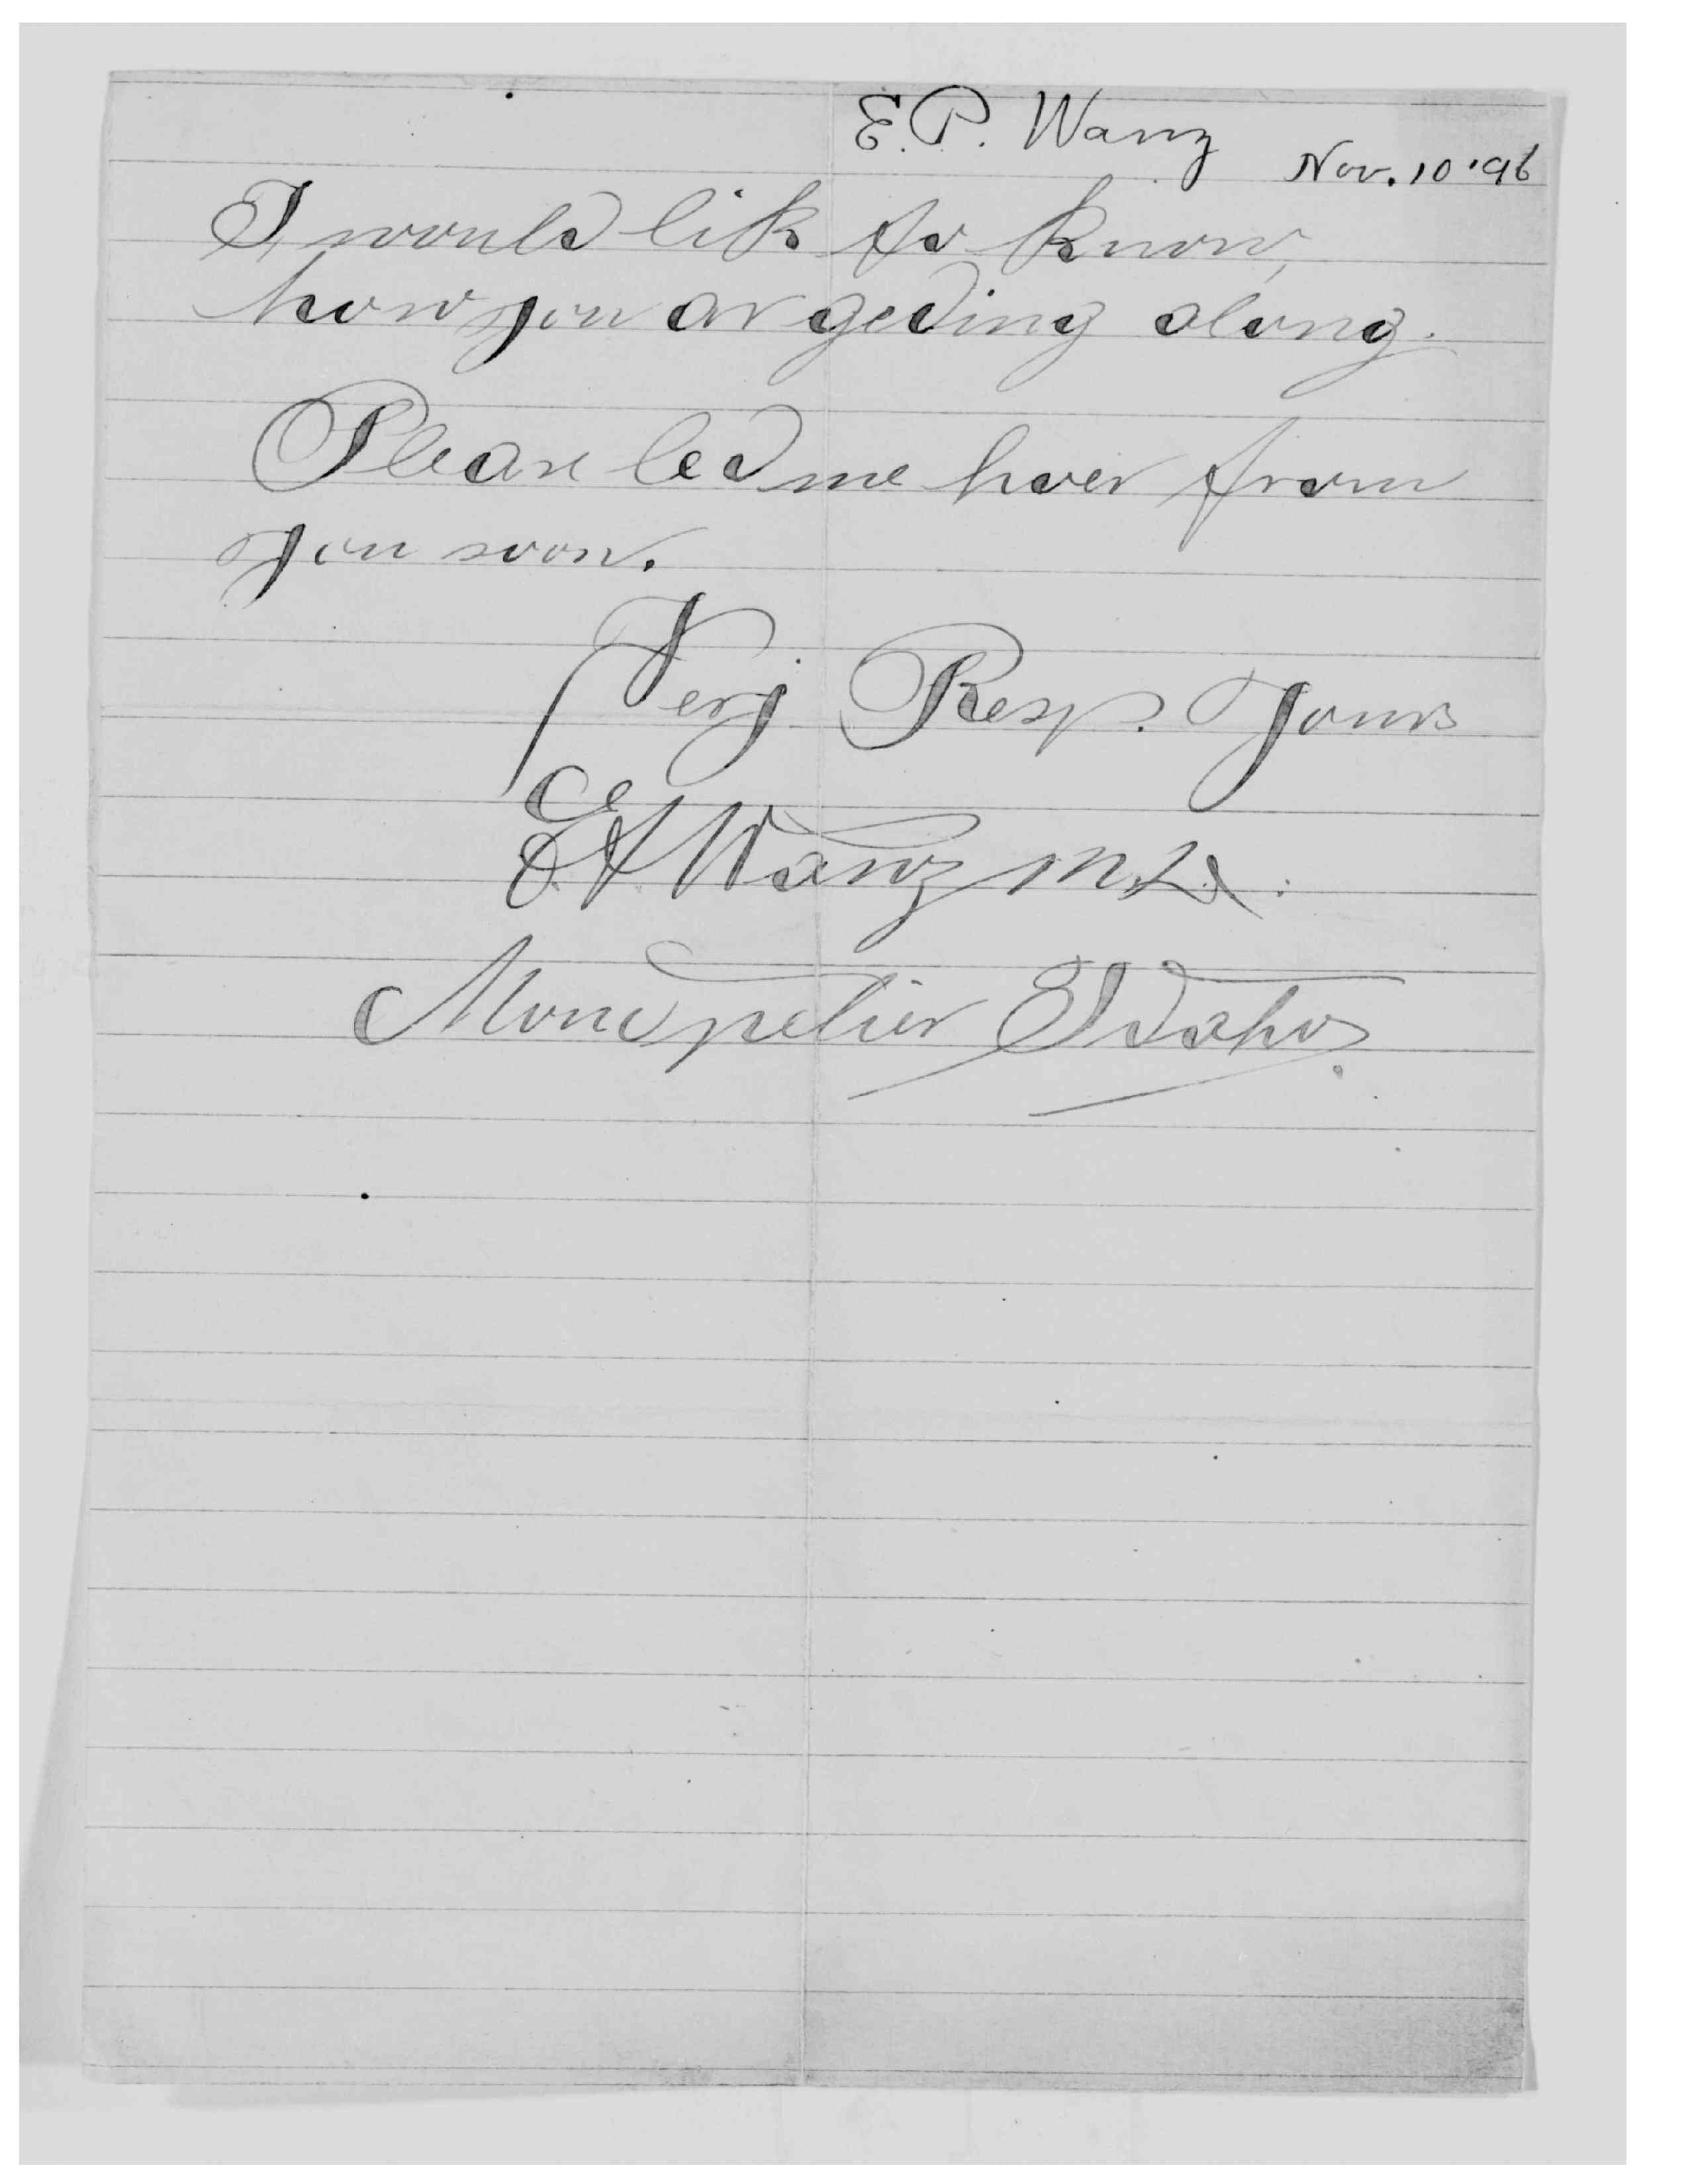 E. P. Wanz
Nov. 10 '96
I would lik to know,
how you ar geting along.
Please led me hoer from
you soon.
Very Resp. Yours
E P Wanz M.D.
Montpelier Idaho.